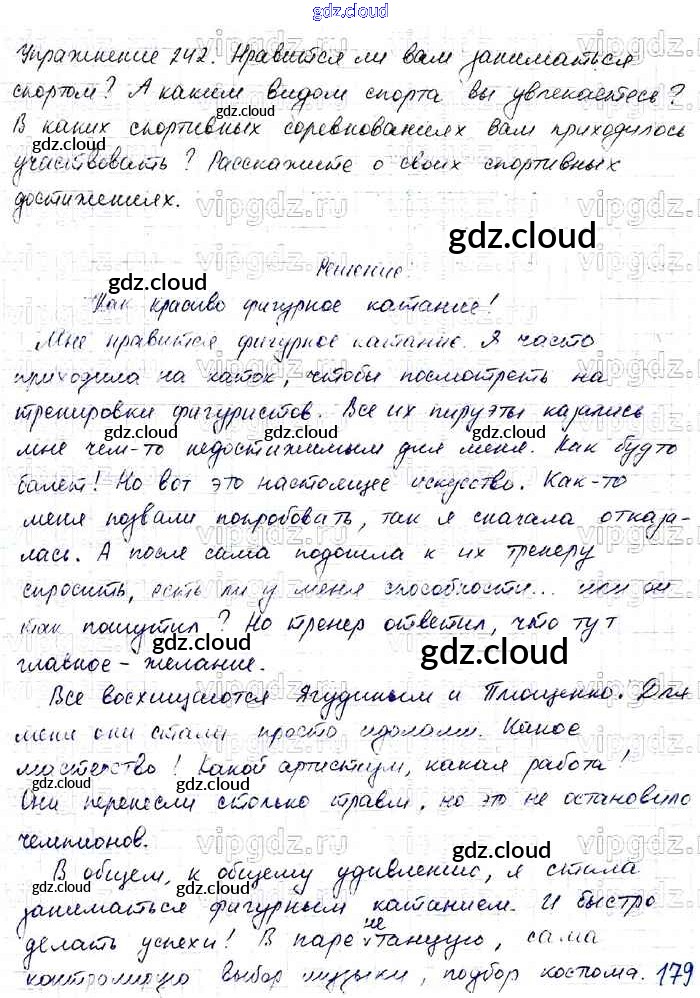 gdz.cloud
Упражнение 242. Нравится ли вам заниматься
спортом? А каким видом спорта вы увлекаетесь?
В каких спортивных соревнованиях вам приходилось
участвовать? Расскажите о своих спортивных
достижениях.
gdz.cloud
Решение:
Как красиво фигурное катание!
Мне нравится фигурное катание. Я часто
приходила на каток, чтобы посмотреть на
тренировки фигуристов. Все их пируэты казались
мне чем-то недостижимым для меня. Как будто
балет! Но вот это настоящее искусство. Как-то
меня позвали попробовать, так я сначала отказа-
лась. А после сама подошла к их тренеру
спросить, есть ли у меня способности... или он
так пошутил? Но тренер ответил, что тут
главное - желание.
Все восхищаются Ягудиным и Плющенко. Для
меня они стали просто идолами. Какое
мастерство! Какой артистизм, какая работа!
Они перенесли столько травм, но это не остановило
чемпионов.
В общем, к общему удивлению, я стала
заниматься фигурным катанием. И быстро
делать успехи! В паре не танцую, сама
контролирую выбор музыки, подбор костюма. 179